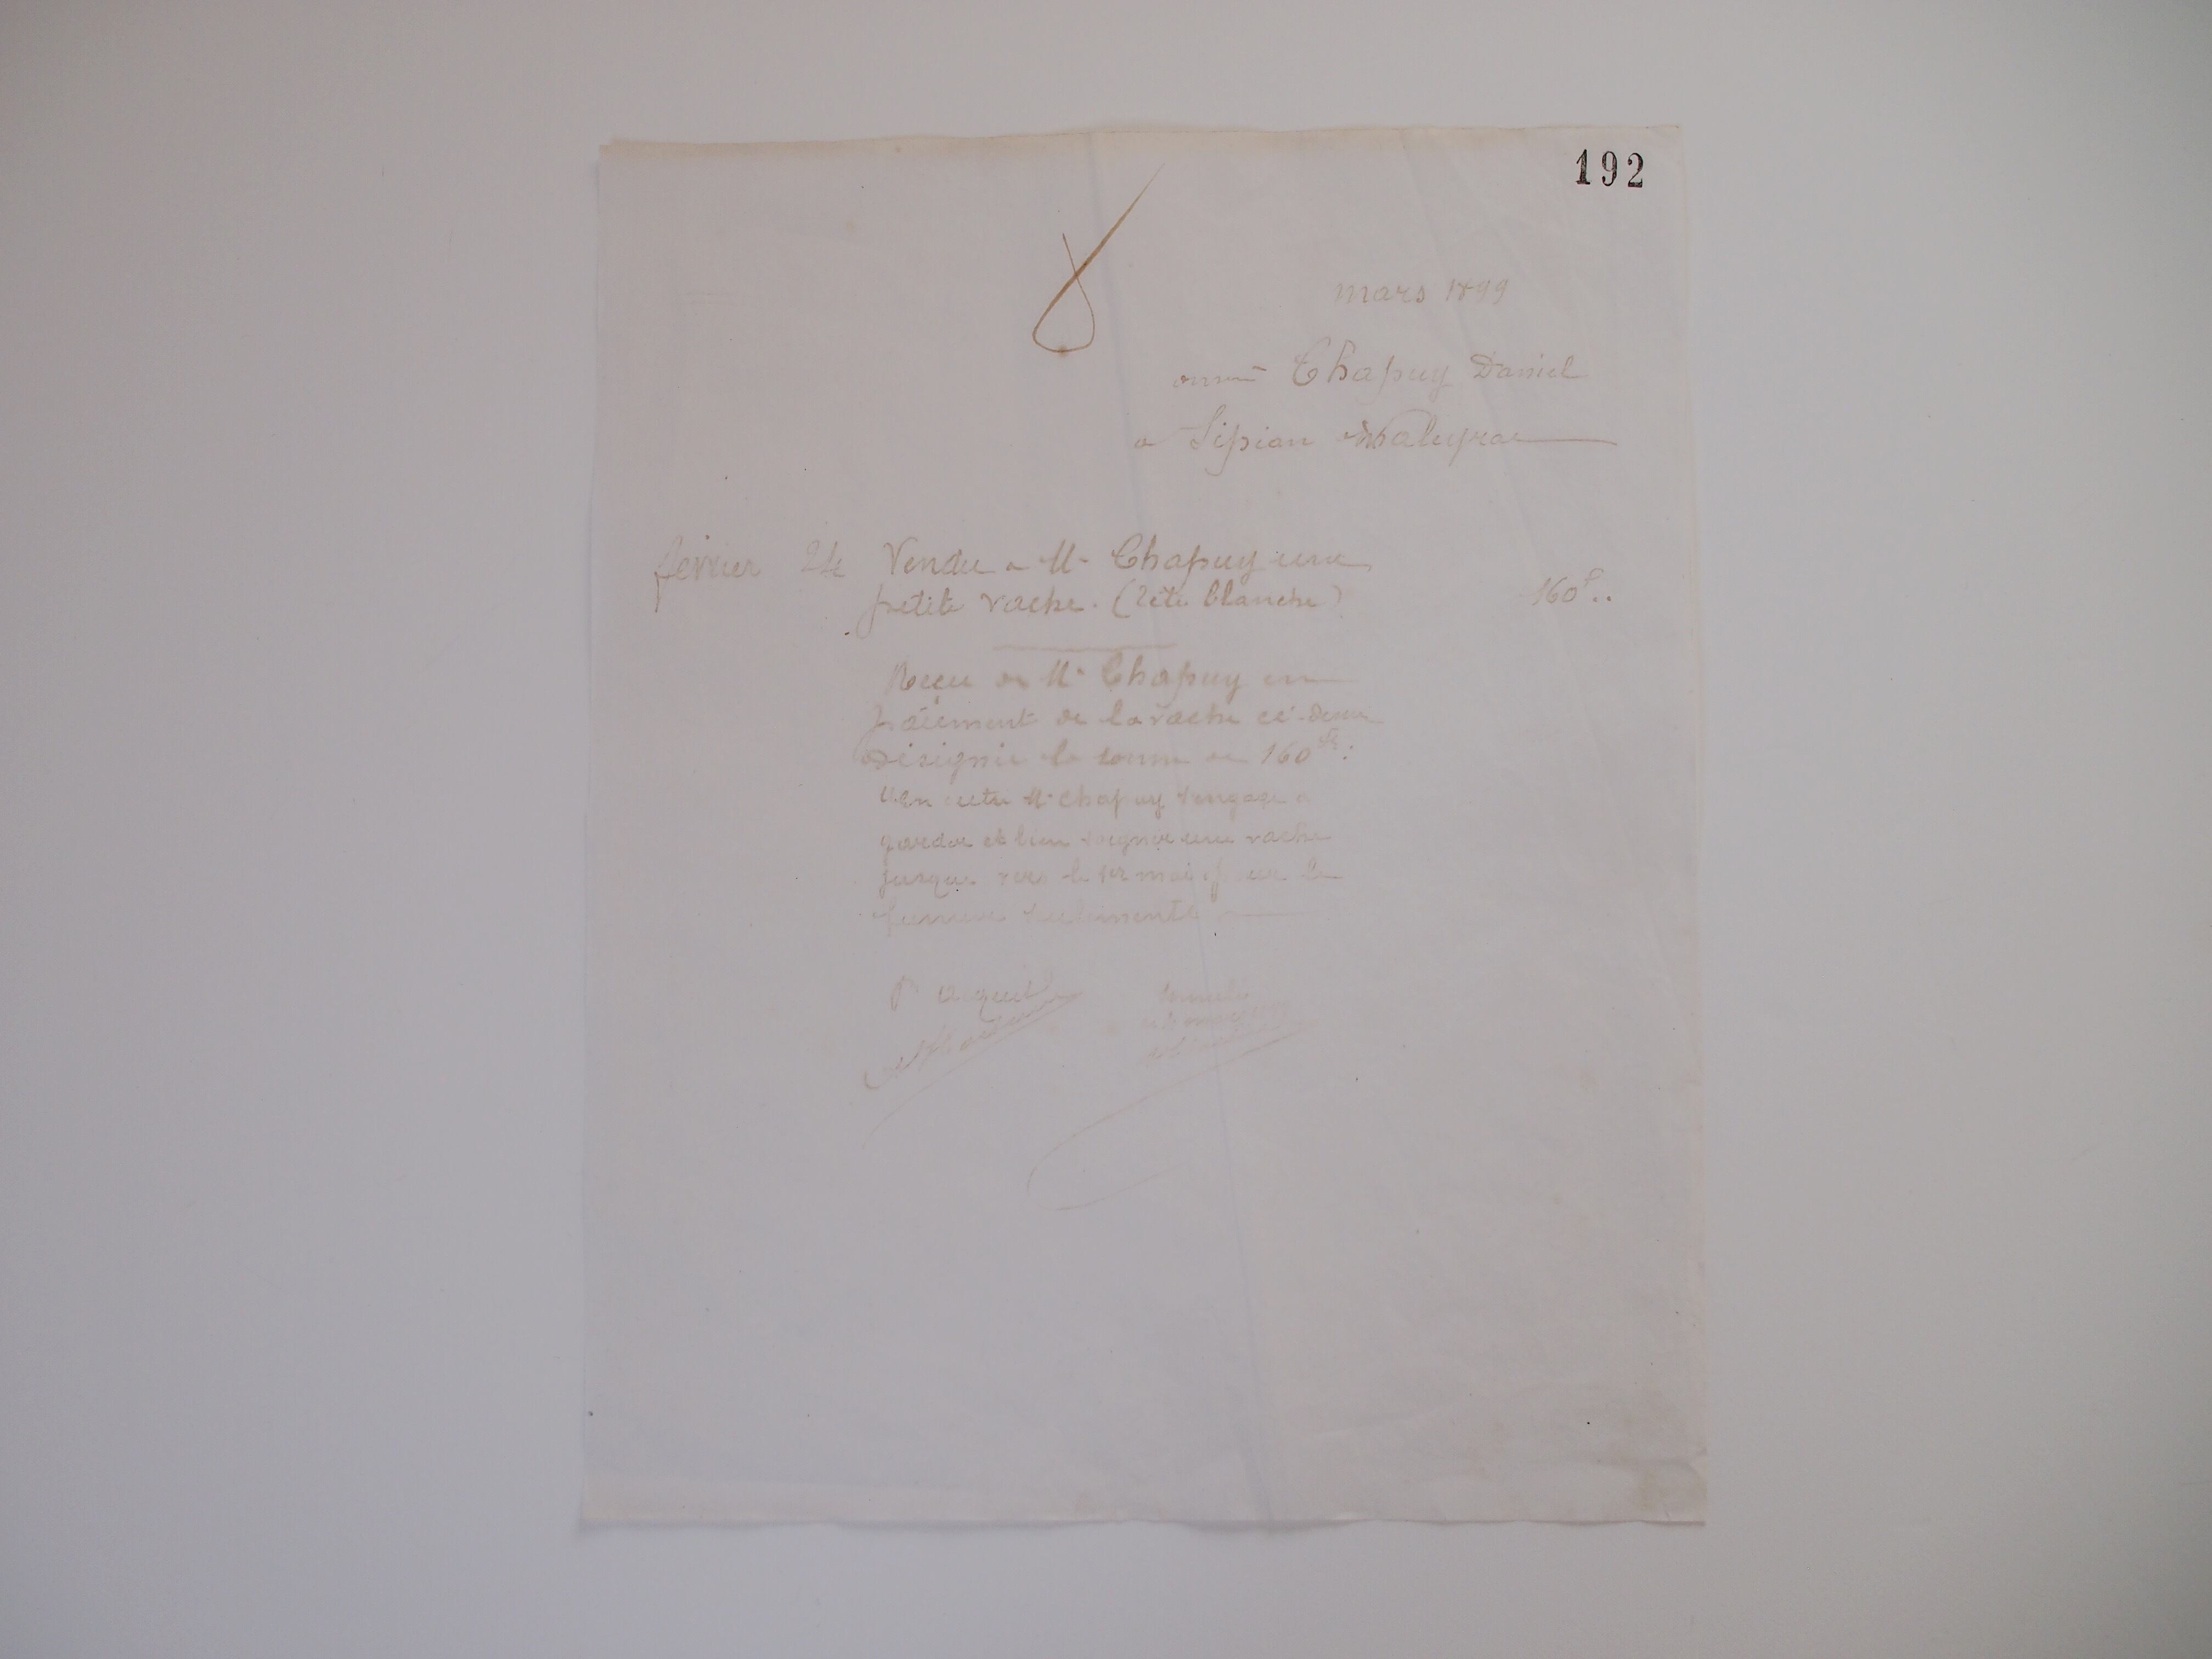 192
mars 1899
Chapuy Daniel
a Sipian Valeyrac
février 24 Vendu a M. Chapuy une
petite vache. (Tête blanche) 160f..
Reçu de Mr Chapuy en
paiement de la vache ci-dessus
désignée la somme de 160fs:
En outre Mr Chapuy s'engage a
garder et bien soigner une vache
jusque vers le 1er mai
fumure seulement
acquit